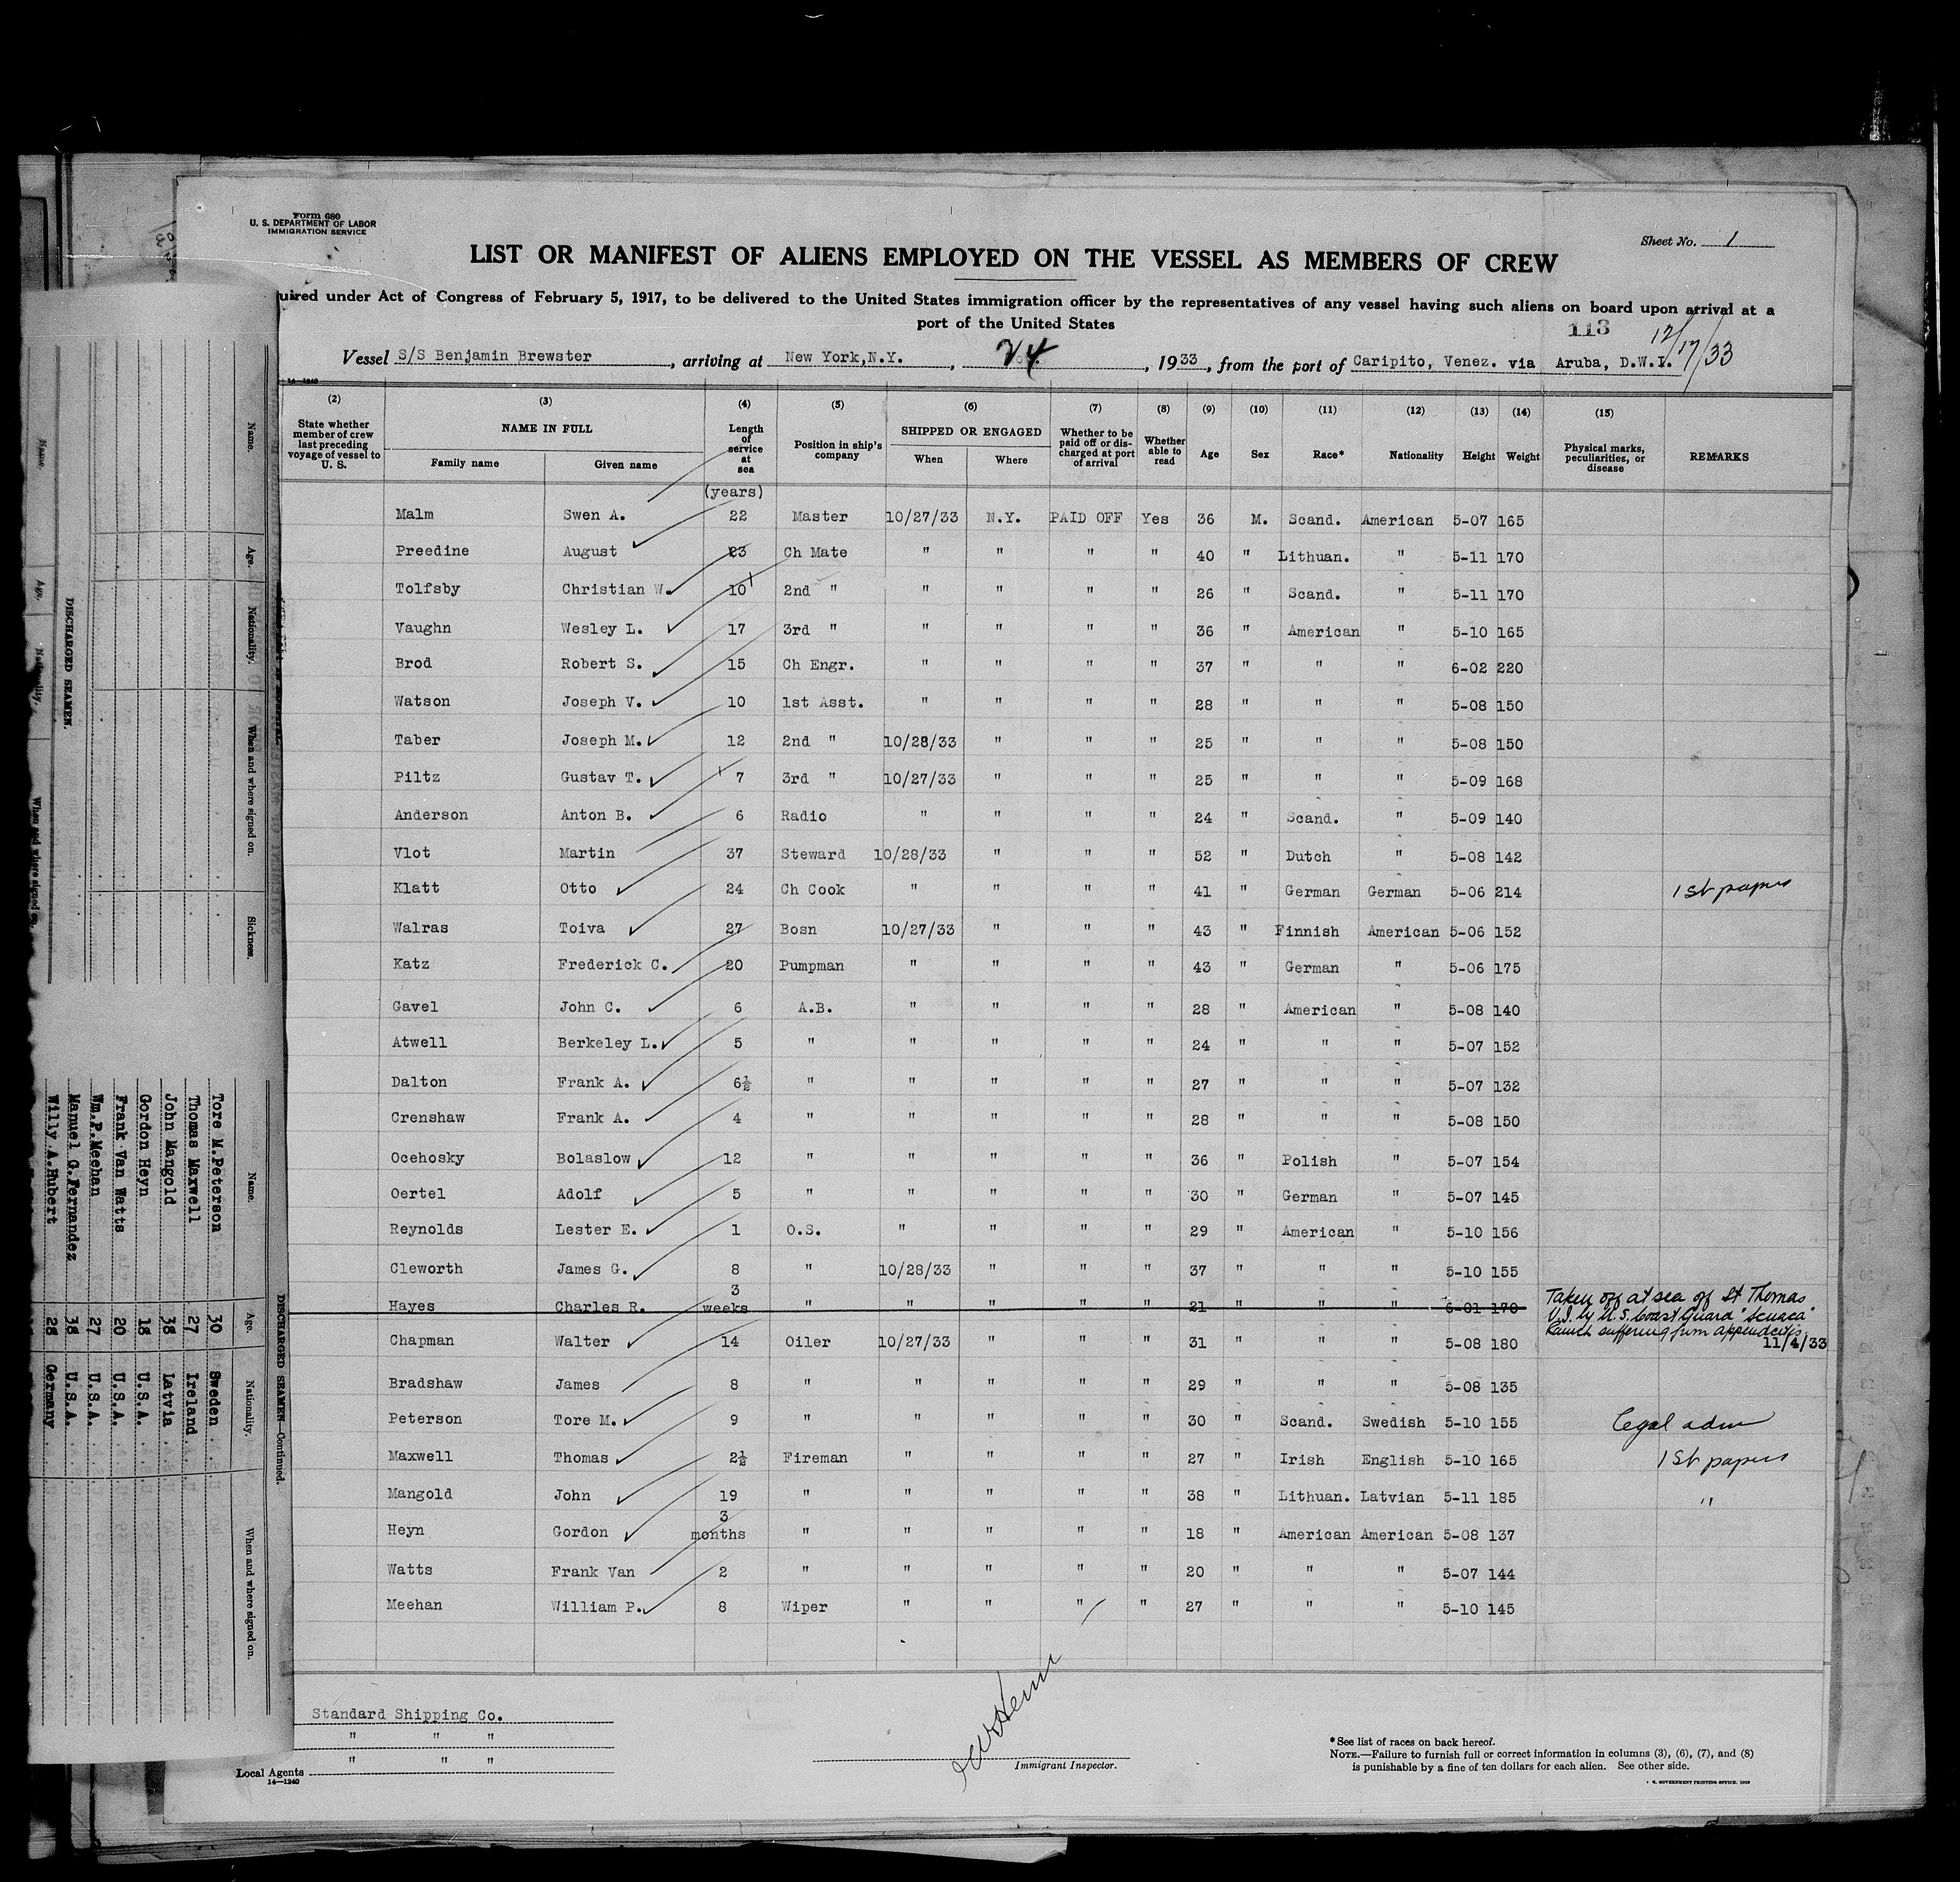 Form 680
U. S. DEPARTMENT OF LABOR
IMMIGRATION SERVICE
Sheet No. 1
LIST OR MANIFEST OF ALIENS EMPLOYED ON THE VESSEL AS MEMBERS OF CREW
uired under Act of Congress of February 5, 1917, to be delivered to the United States immigration officer by the representatives of any vessel having such aliens on board upon arrival at a
port of the United States
113
12/17/33
Vessel S/S Benjamin Brewster, arriving at New York,N.Y., 1933, from the port of Caripito, Venez. via Aruba, D.W.I.
14—1240
(2) (3) (4) (5) (6) (7) (8) (9) (10) (11) (12) (13) (14) (15)
State whether member of crew last preceding voyage of vessel to U. S.
NAME IN FULL
Family name Given name
Length of service at sea
(years)
Position in ship's company
SHIPPED OR ENGAGED
When Where
Whether to be paid off or discharged at port of arrival
Whether able to read
Age Sex Race* Nationality Height Weight
Physical marks, peculiarities, or disease
REMARKS
Malm Swen A. 22 Master 10/27/33 N.Y. PAID OFF Yes 36 M. Scand. American 5-07 165
Preedine August 23 Ch Mate " " " " 40 " Lithuan. " 5-11 170
Tolfsby Christian W. 10 2nd " " " " " 26 " Scand. " 5-11 170
Vaughn Wesley L. 17 3rd " " " " " 36 " American " 5-10 165
Brod Robert S. 15 Ch Engr. " " " " 37 " " " 6-02 220
Watson Joseph V. 10 1st Asst. " " " " 28 " " " 5-08 150
Taber Joseph M. 12 2nd " 10/28/33 " " " 25 " " " 5-08 150
Piltz Gustav T. 7 3rd " 10/27/33 " " " 25 " " " 5-09 168
Anderson Anton B. 6 Radio " " " " 24 " Scand. " 5-09 140
Vlot Martin 37 Steward 10/28/33 " " " 52 " Dutch " 5-08 142
Klatt Otto 24 Ch Cook " " " " 41 " German German 5-06 214 1st papers
Walras Toiva 27 Bosn 10/27/33 " " " 43 " Finnish American 5-06 152
Katz Frederick C. 20 Pumpman " " " " 43 " German " 5-06 175
Gavel John C. 6 A.B. " " " " 28 " American " 5-08 140
Atwell Berkeley L. 5 " " " " " 24 " " " 5-07 152
Dalton Frank A. 6½ " " " " " 27 " " " 5-07 132
Crenshaw Frank A. 4 " " " " " 28 " " " 5-08 150
Ocehosky Bolaslow 12 " " " " " 36 " Polish " 5-07 154
Oertel Adolf 5 " " " " " 30 " German " 5-07 145
Reynolds Lester E. 1 O.S. " " " " 29 " American " 5-10 156
Cleworth James G. 8 " 10/28/33 " " " 37 " " " 5-10 155
Hayes Charles R. 3 weeks " " " " " 21 " " " 6-01 170 Taken off at sea off St Thomas
V.I. by U.S. Coast Guard "Seneca"
launch suffering from appendecitis.
11/4/33
Chapman Walter 14 Oiler 10/27/33 " " " 31 " " " 5-08 180
Bradshaw James 8 " " " " " 29 " " " 5-08 135
Peterson Tore M. 9 " " " " " 30 " Scand. Swedish 5-10 155 legal adm
Maxwell Thomas 2½ Fireman " " " " 27 " Irish English 5-10 165 1st papers
Mangold John 19 " " " " " 38 " Lithuan. Latvian 5-11 185 "
Heyn Gordon 3 months " " " " " 18 " American American 5-08 137
Watts Frank Van 2 " " " " " 20 " " " 5-07 144
Meehan William P. 8 Wiper " " " " 27 " " " 5-10 145
Standard Shipping Co.
" " "
" " "
Local Agents
14—1240
Immigrant Inspector.
*See list of races on back hereof.
NOTE.—Failure to furnish full or correct information in columns (3), (6), (7), and (8)
is punishable by a fine of ten dollars for each alien. See other side.
GOVERNMENT PRINTING OFFICE
Name. Age. Nationality. When and where signed on. Sickness.
DISCHARGED SEAMEN.
DISCHARGED SEAMEN—Continued.
Name. Age. Nationality. When and where signed on.
Tore M.Peterson 30 Sweden
Thomas Maxwell 27 Ireland
John Mangold 38 Latvia
Gordon Heyn 18 U.S.A.
Frank Van Watts 20 U.S.A.
Wm.P.Meehan 27 U.S.A.
Manuel G.Fernandez 38 U.S.A.
Willy A.Hubert 28 Germany